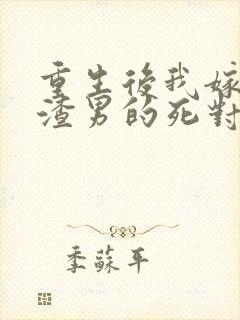 重生後我嫁
渣男的死對
季蘇平